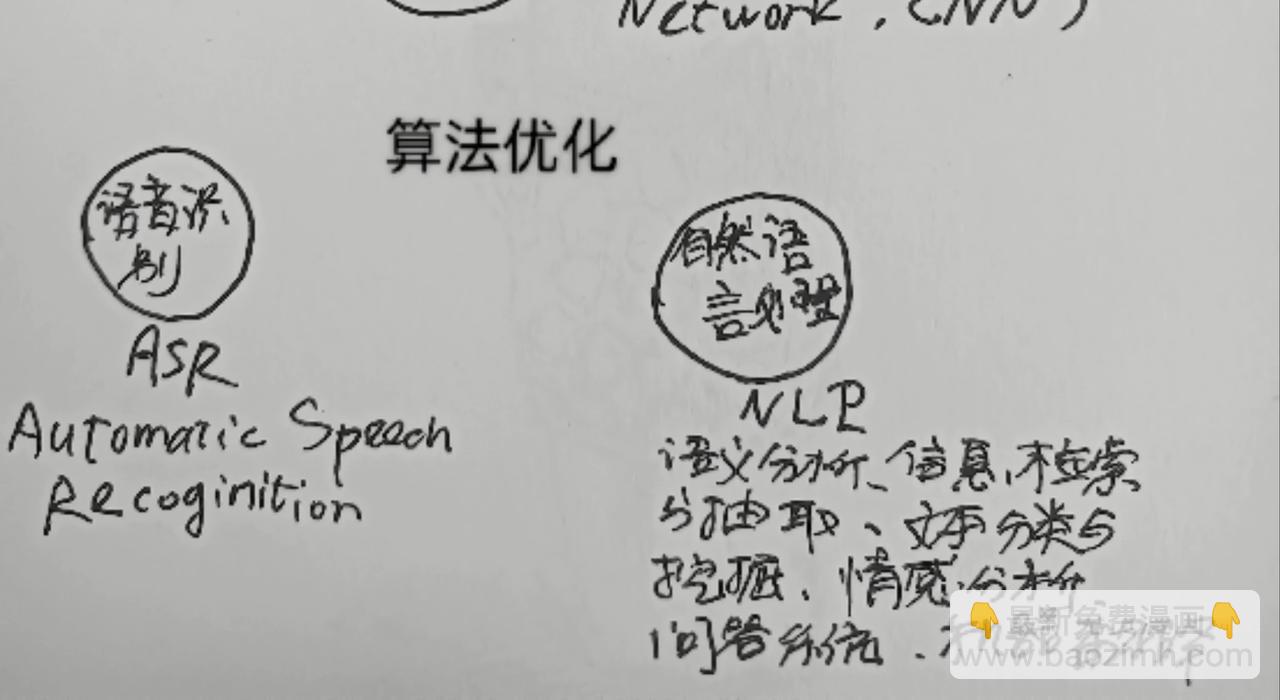 Network, CNN)
算法优化
语音识
别
ASR
Automatic Speech
Recoginition
自然语
言处理
NLP
语义分析、信息检索
与抽取、文本分类与
挖掘、情感分析
问答系统、
👇最新免费漫画👇
www.baozimh.com